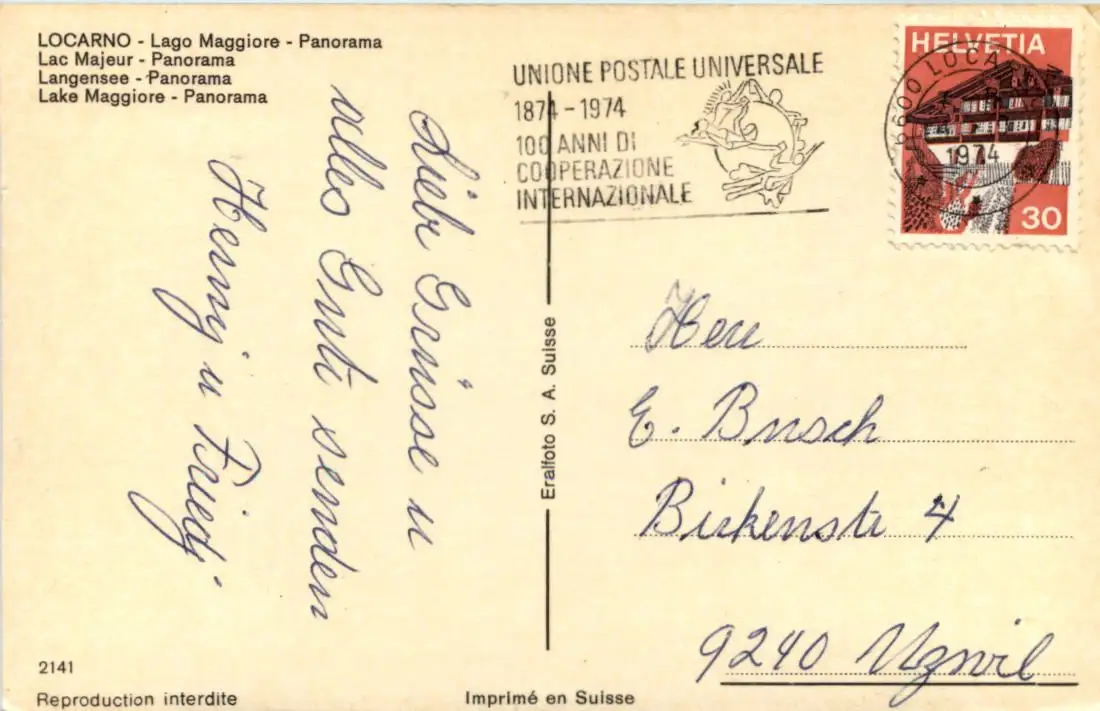 LOCARNO - Lago Maggiore - Panorama
Lac Majeur - Panorama
Langensee - Panorama
Lake Maggiore - Panorama
Liebe Grüsse u
alles Gute senden
Henny u Friedj
UNIONE POSTALE UNIVERSALE
1874 - 1974
100 ANNI DI
COOPERAZIONE
INTERNAZIONALE
HELVETIA
6600 LOCA
1974
30
Eralfoto S. A. Suisse
Herr
E. Busch
Birkenstr 4
9240 Uzwil
2141
Reproduction interdite
Imprimé en Suisse